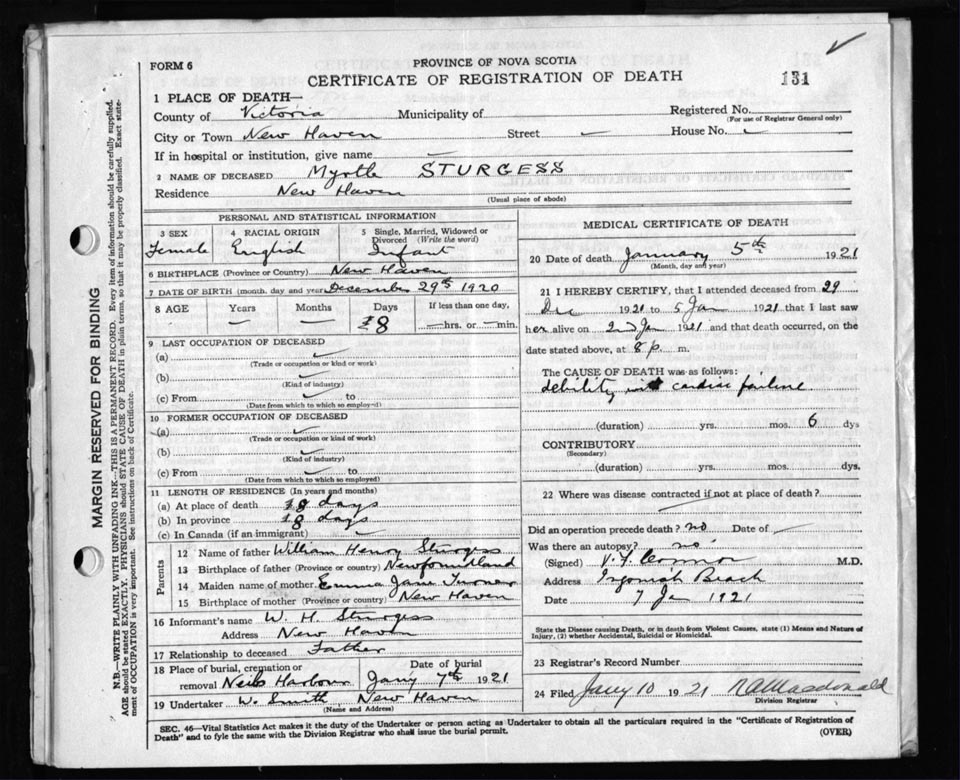 FORM 6
PROVINCE OF NOVA SCOTIA
CERTIFICATE OF REGISTRATION OF DEATH
131
1 PLACE OF DEATH—
County of Victoria Municipality of Registered No.
(For use of Registrar General only)
City or Town New Haven Street — House No.
If in hospital or institution, give name —
2 NAME OF DECEASED Myrtle STURGESS
Residence New Haven
(Usual place of abode)
PERSONAL AND STATISTICAL INFORMATION
3 SEX 4 RACIAL ORIGIN 5 Single, Married, Widowed or Divorced (Write the word)
Female English Infant
6 BIRTHPLACE (Province or Country) New Haven
7 DATE OF BIRTH (month, day and year) December 29th 1920
8 AGE Years Months Days If less than one day,
— — 8 — hrs. or — min.
9 LAST OCCUPATION OF DECEASED
(a)
(Trade or occupation or kind of work)
(b)
(Kind of industry)
(c) From to
(Date from which to which so employed)
10 FORMER OCCUPATION OF DECEASED
(a)
(Trade or occupation or kind of work)
(b)
(Kind of industry)
(c) From to
(Date from which to which so employed)
11 LENGTH OF RESIDENCE (In years and months)
(a) At place of death 8 days
(b) In province 8 days
(c) In Canada (if an immigrant)
Parents
12 Name of father William Henry Sturgess
13 Birthplace of father (Province or country) Newfoundland
14 Maiden name of mother Emma Jane Turner
15 Birthplace of mother (Province or country) New Haven
16 Informant's name W. H. Sturgess
Address New Haven
17 Relationship to deceased Father
18 Place of burial, cremation or removal Neils Harbour Date of burial Jany 7th 1921
19 Undertaker W. Smith New Haven
(Name and Address)
MEDICAL CERTIFICATE OF DEATH
20 Date of death January 5th 1921
(Month, day and year)
21 I HEREBY CERTIFY, that I attended deceased from 29
Dec 1921 to 5 Jan 1921 that I last saw
her alive on 2nd Jan 1921 and that death occurred, on the
date stated above, at 8 p. m.
The CAUSE OF DEATH was as follows:
debility cardiac failure
(duration) yrs. mos. 6 dys
CONTRIBUTORY
(Secondary)
(duration) yrs. mos. dys.
22 Where was disease contracted if not at place of death?
Did an operation precede death? no Date of —
Was there an autopsy? no
(Signed) M.D.
Address Ingonish Beach
Date 7 Jan 1921
State the Disease causing Death, or in death from Violent Causes, state (1) Means and Nature of
Injury, (2) whether Accidental, Suicidal or Homicidal.
23 Registrar's Record Number
24 Filed Jany 10 1921 Macdonald
Division Registrar
SEC. 46—Vital Statistics Act makes it the duty of the Undertaker or person acting as Undertaker to obtain all the particulars required in the "Certificate of Registration of
Death" and to fyle the same with the Division Registrar who shall issue the burial permit.
(OVER)
MARGIN RESERVED FOR BINDING
N.B.—WRITE PLAINLY WITH UNFADING INK—THIS IS A PERMANENT RECORD. Every item of information should be carefully supplied.
AGE should be stated EXACTLY. PHYSICIANS should STATE CAUSE OF DEATH in plain terms, so that it may be properly classified. Exact state-
ment of OCCUPATION is very important. See instructions on back of Certificate.